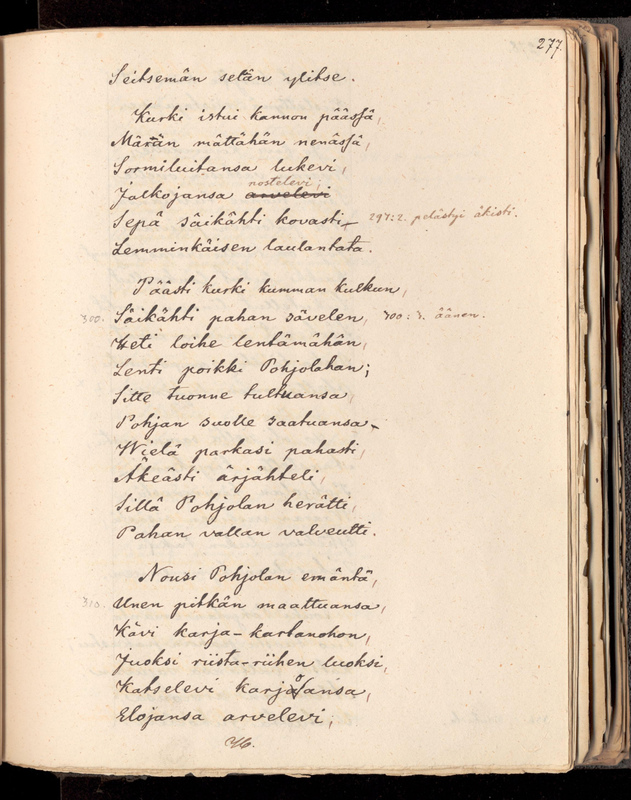 277.
Seitsemän setän ylitse.
Kurki istui kannon päässä,
Märän mättähän nenässä,
Sormiluitansa lukevi,
nostelevi,
Jalkojansa arvelevi
Sepä säikähti kovasti 297:2. pelästyi äkisti.
Lemminkäisen laulantata.
Päästi kurki kumman kulkun,
300. Säikähti pahan sävelen, 300:3. äänen.
Heti loihe lentämähän,
Lenti poikki Pohjolahan;
Sitte tuonne tultuansa,
Pohjan suolle saatuansa
Wielä parkasi pahasti,
Äkeästi ärjähteli,
Sillä Pohjolan herätti,
Pahan vallan valveutti.
Nousi Pohjolan emäntä,
310. Unen pitkän maattuansa,
Kävi karja-kartanohon,
Juoksi riista-riihen luoksi,
Katselevi karjoansa,
Elojansa arvelevi;